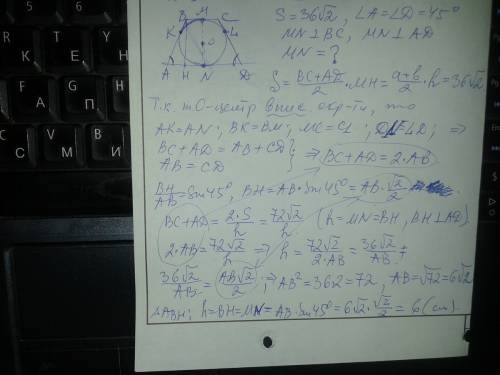 B M C
K L
O
A H N D
S=36√2, ∠A=∠D=45°
MN⊥BC, MN⊥AD
MN=?
S=(BC+AD)/2·MH=(a+b)/2·h=36√2
Т.к. т.О-центр впис окр-ти, то
AK=AN; BK=BM; MC=CL; =LD; ⇒
BC+AD=AB+CD
AB=CD } ⇒ BC+AD=2·AB
BH/AB=Sin45°, BH=AB·Sin45°=AB·√2/2
BC+AD=2·S/h=72√2/h (h=MN=BH, BH⊥AD)
2·AB=72√2/h ⇒ h=72√2/2·AB=36√2/AB
36√2/AB=AB√2/2; ⇒ AB²=36·2=72, AB=√72=6√2
△ABH; h=BH=MN=AB·Sin45°=6√2·√2/2=6(см)